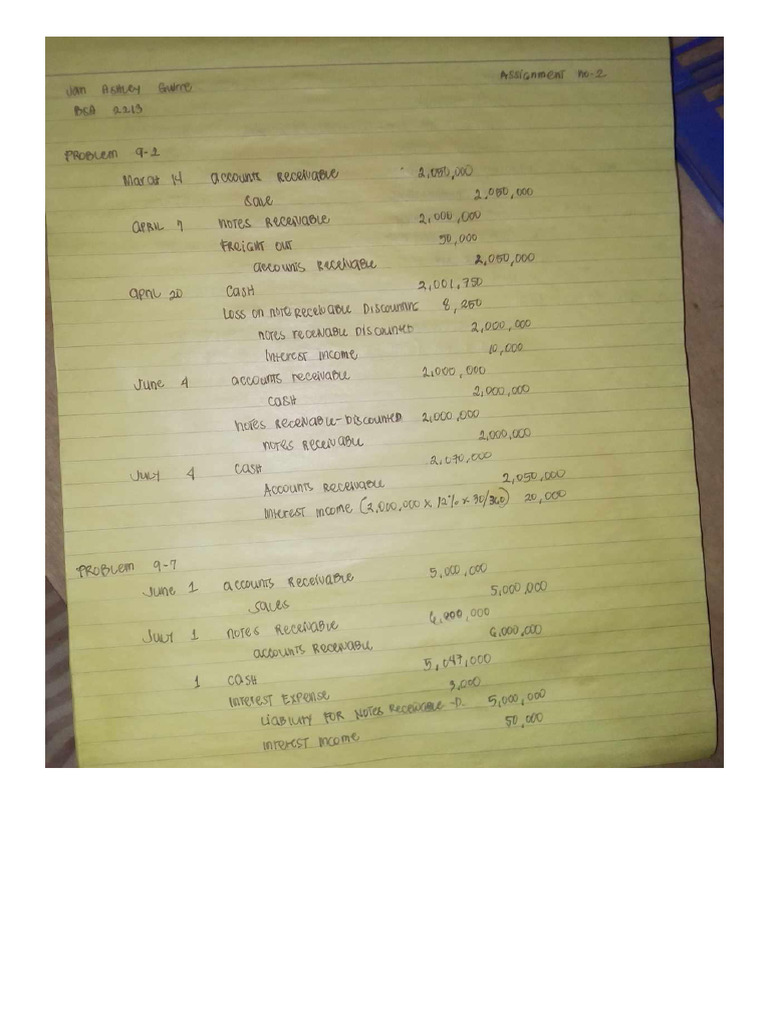 Assignment no-2
Jan Ashley
BSA 2213
PROBLEM 9-2
March 14 accounts Receivable 2,050,000
Sale 2,050,000
APRIL 7 Notes Receivable 2,000,000
FREIGHT OUT 50,000
accounts Receivable 2,050,000
April 20 Cash 2,001,750
Loss on note Receivable Discounting 8,250
Notes receivable Discounted 2,000,000
Interest income 10,000
June 4 accounts receivable 2,000,000
CASH 2,000,000
Notes Receivable-Discounted 2,000,000
Notes Receivable 2,000,000
JULY 4 CASH 2,070,000
Accounts Receivable 2,050,000
Interest Income (2,000,000 x 12% x 30/360) 20,000
PROBLEM 9-7
June 1 accounts Receivable 5,000,000
Sales 5,000,000
JULY 1 Notes Receivable
accounts Receivable
1 CASH 5,047,000
Interest Expense 3,000
Liability FOR Notes Receivable -D. 5,000,000
Interest Income 50,000